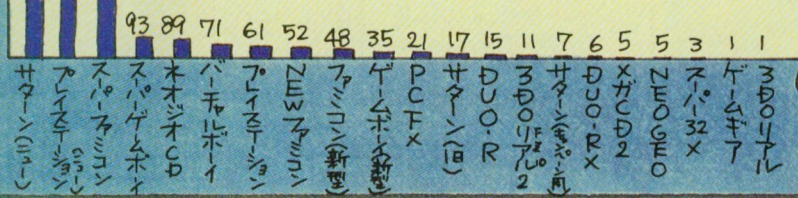 93 89 71 61 52 48 35 21 17 15 11 7 6 5 5 3 1 1
サターン(ニュー)
プレイステーション(ニュー)
スーパーファミコン
スーパーゲームボーイ
ネオジオCD
バーチャルボーイ
プレイステーション
NEWファミコン
ファミコン(新型)
ゲームボーイ(新型)
PCFX
サターン(旧)
DUO-R
3DOリアル2
サターン(キャンペーン用)
DUO-RX
メガCD2
NEOGEO
スーパー32X
ゲームギア
3DOリアル